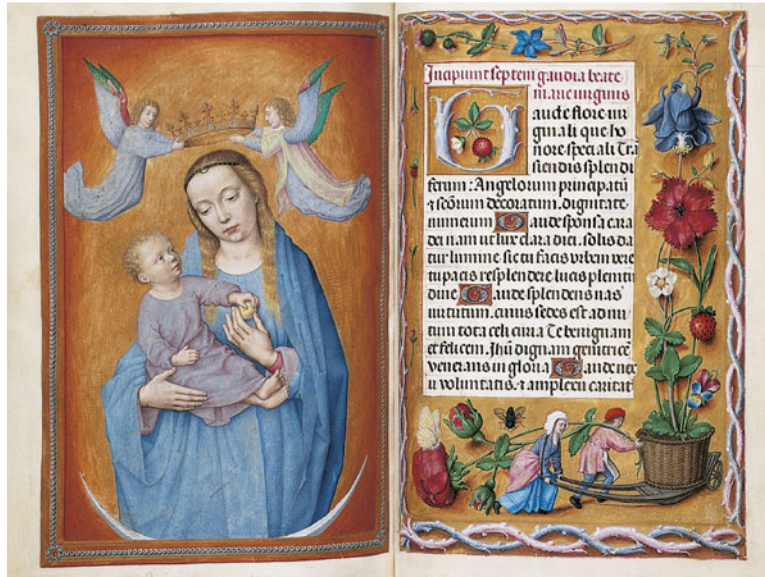 Incipiunt septem gaudia beate
marie virginis
aude flore vir
ginali que ho
nore speciali Trā
siendis splendi
ferum : Angelorum principatū
⁊ scōrum decoratum. dignitate
numerum Gaude sponsa cara
dei nam ut lux clara diei. solis da
tur lumine sic tu facis orbem vere
tu pacis resplendere lucis plenitu
dine Gaude splendens uas
uirtutum. cuius sedes est ad nu
tum tota celi curia Te benignam
et felicem. Jhū dignam genitricē
venerans in gloria Gaude nex
u voluntatis. ⁊ amplexu caritat